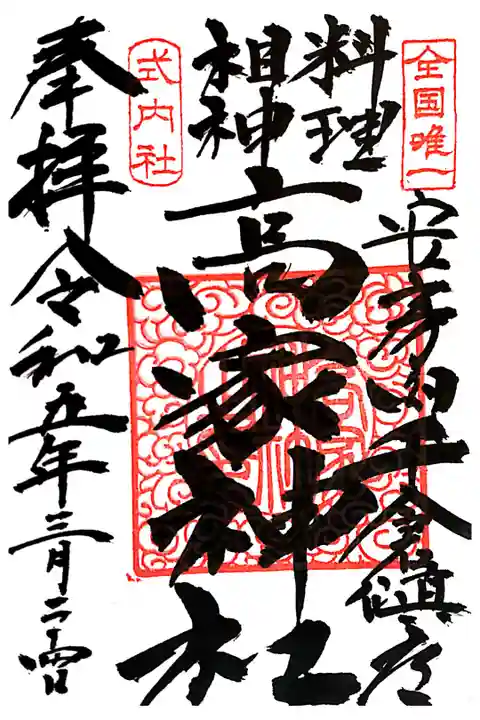 全国唯一
安房國千倉鎮座
料理
祖神
高家神社
式内社
奉拝
令和五年三月二十四日